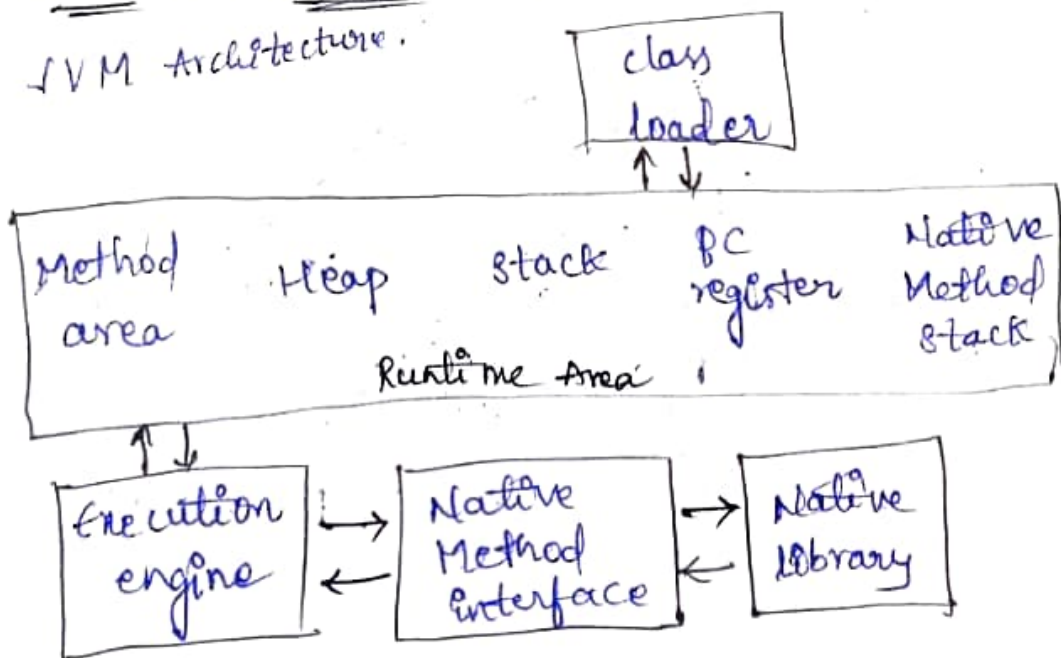 JVM Architecture.
class
loader
Method
area
Heap
stack
PC
register
Native
Method
stack
Runtime Area
Execution
engine
Native
Method
interface
Native
library